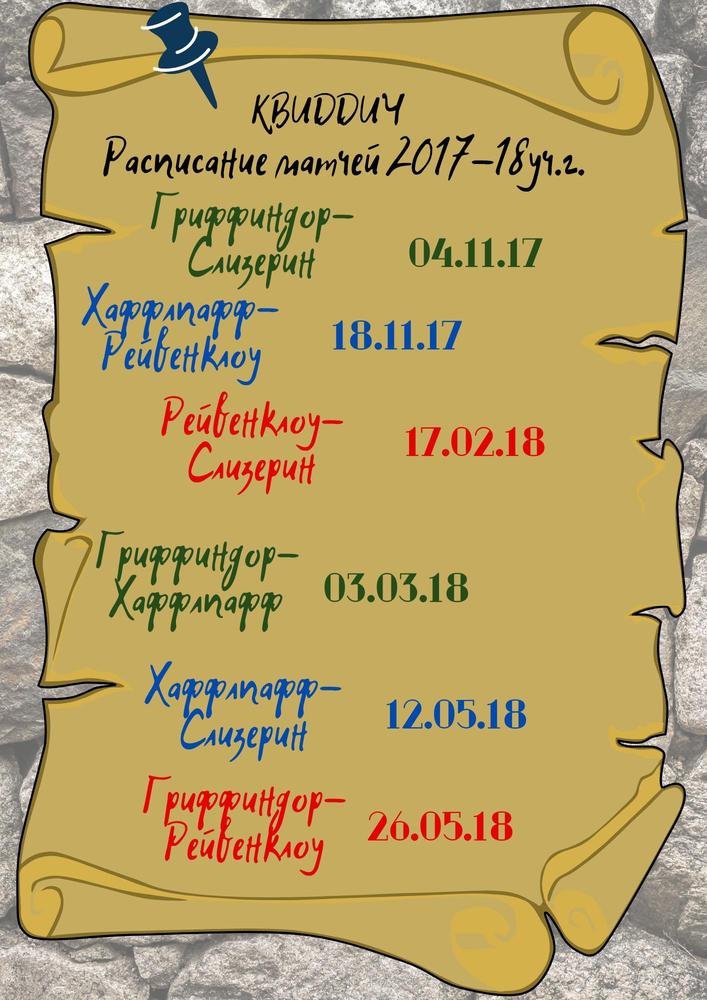 КВИДДИЧ
Расписание матчей 2017-18уч.г.
Гриффиндор-
Слизерин
04.11.17
Хаффлпафф-
Рейвенклоу
18.11.17
Рейвенклоу-
Слизерин
17.02.18
Гриффиндор-
Хаффлпафф
03.03.18
Хаффлпафф-
Слизерин
12.05.18
Гриффиндор-
Рейвенклоу
26.05.18